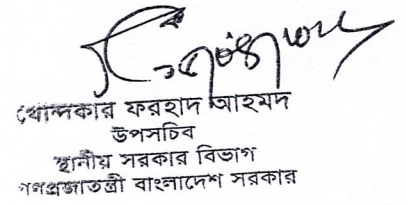 খোন্দকার ফরহাদ আহমদ
উপসচিব
স্থানীয় সরকার বিভাগ
গনপ্রজাতন্ত্রী বাংলাদেশ সরকার